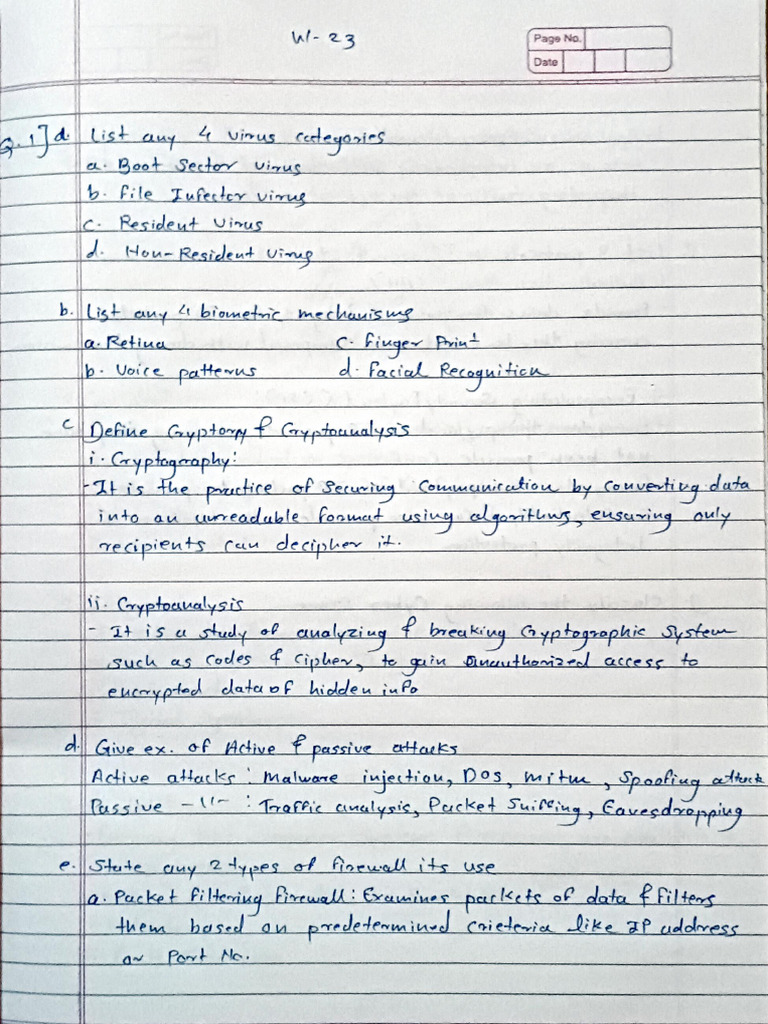 W-23
Page No.
Date
Q.1] d. List any 4 virus categories
a. Boot Sector virus
b. File Infector virus
c. Resident Virus
d. Non-Resident Virus
b. List any 4 biometric mechanisms
a. Retina c. Finger Print
b. Voice patterns d. Facial Recognition
c Define Cryptogy & Cryptoanalysis
i. Cryptography:
- It is the practice of securing communication by converting data
into an unreadable format using algorithms, ensuring only
recipients can decipher it.
ii. Cryptoanalysis
- It is a study of analyzing & breaking Cryptographic System
such as codes & cipher, to gain unauthorized access to
encrypted data of hidden info
d. Give ex. of Active & passive attacks
Active attacks : Malware injection, DOS, mitm, Spoofing attack
Passive -11- : Traffic analysis, Packet Sniffing, Eavesdropping
e. State any 2 types of firewall its use
a. Packet filtering firewall: Examines packets of data & filters
them based on predetermined crieteria like IP address
or Port No.